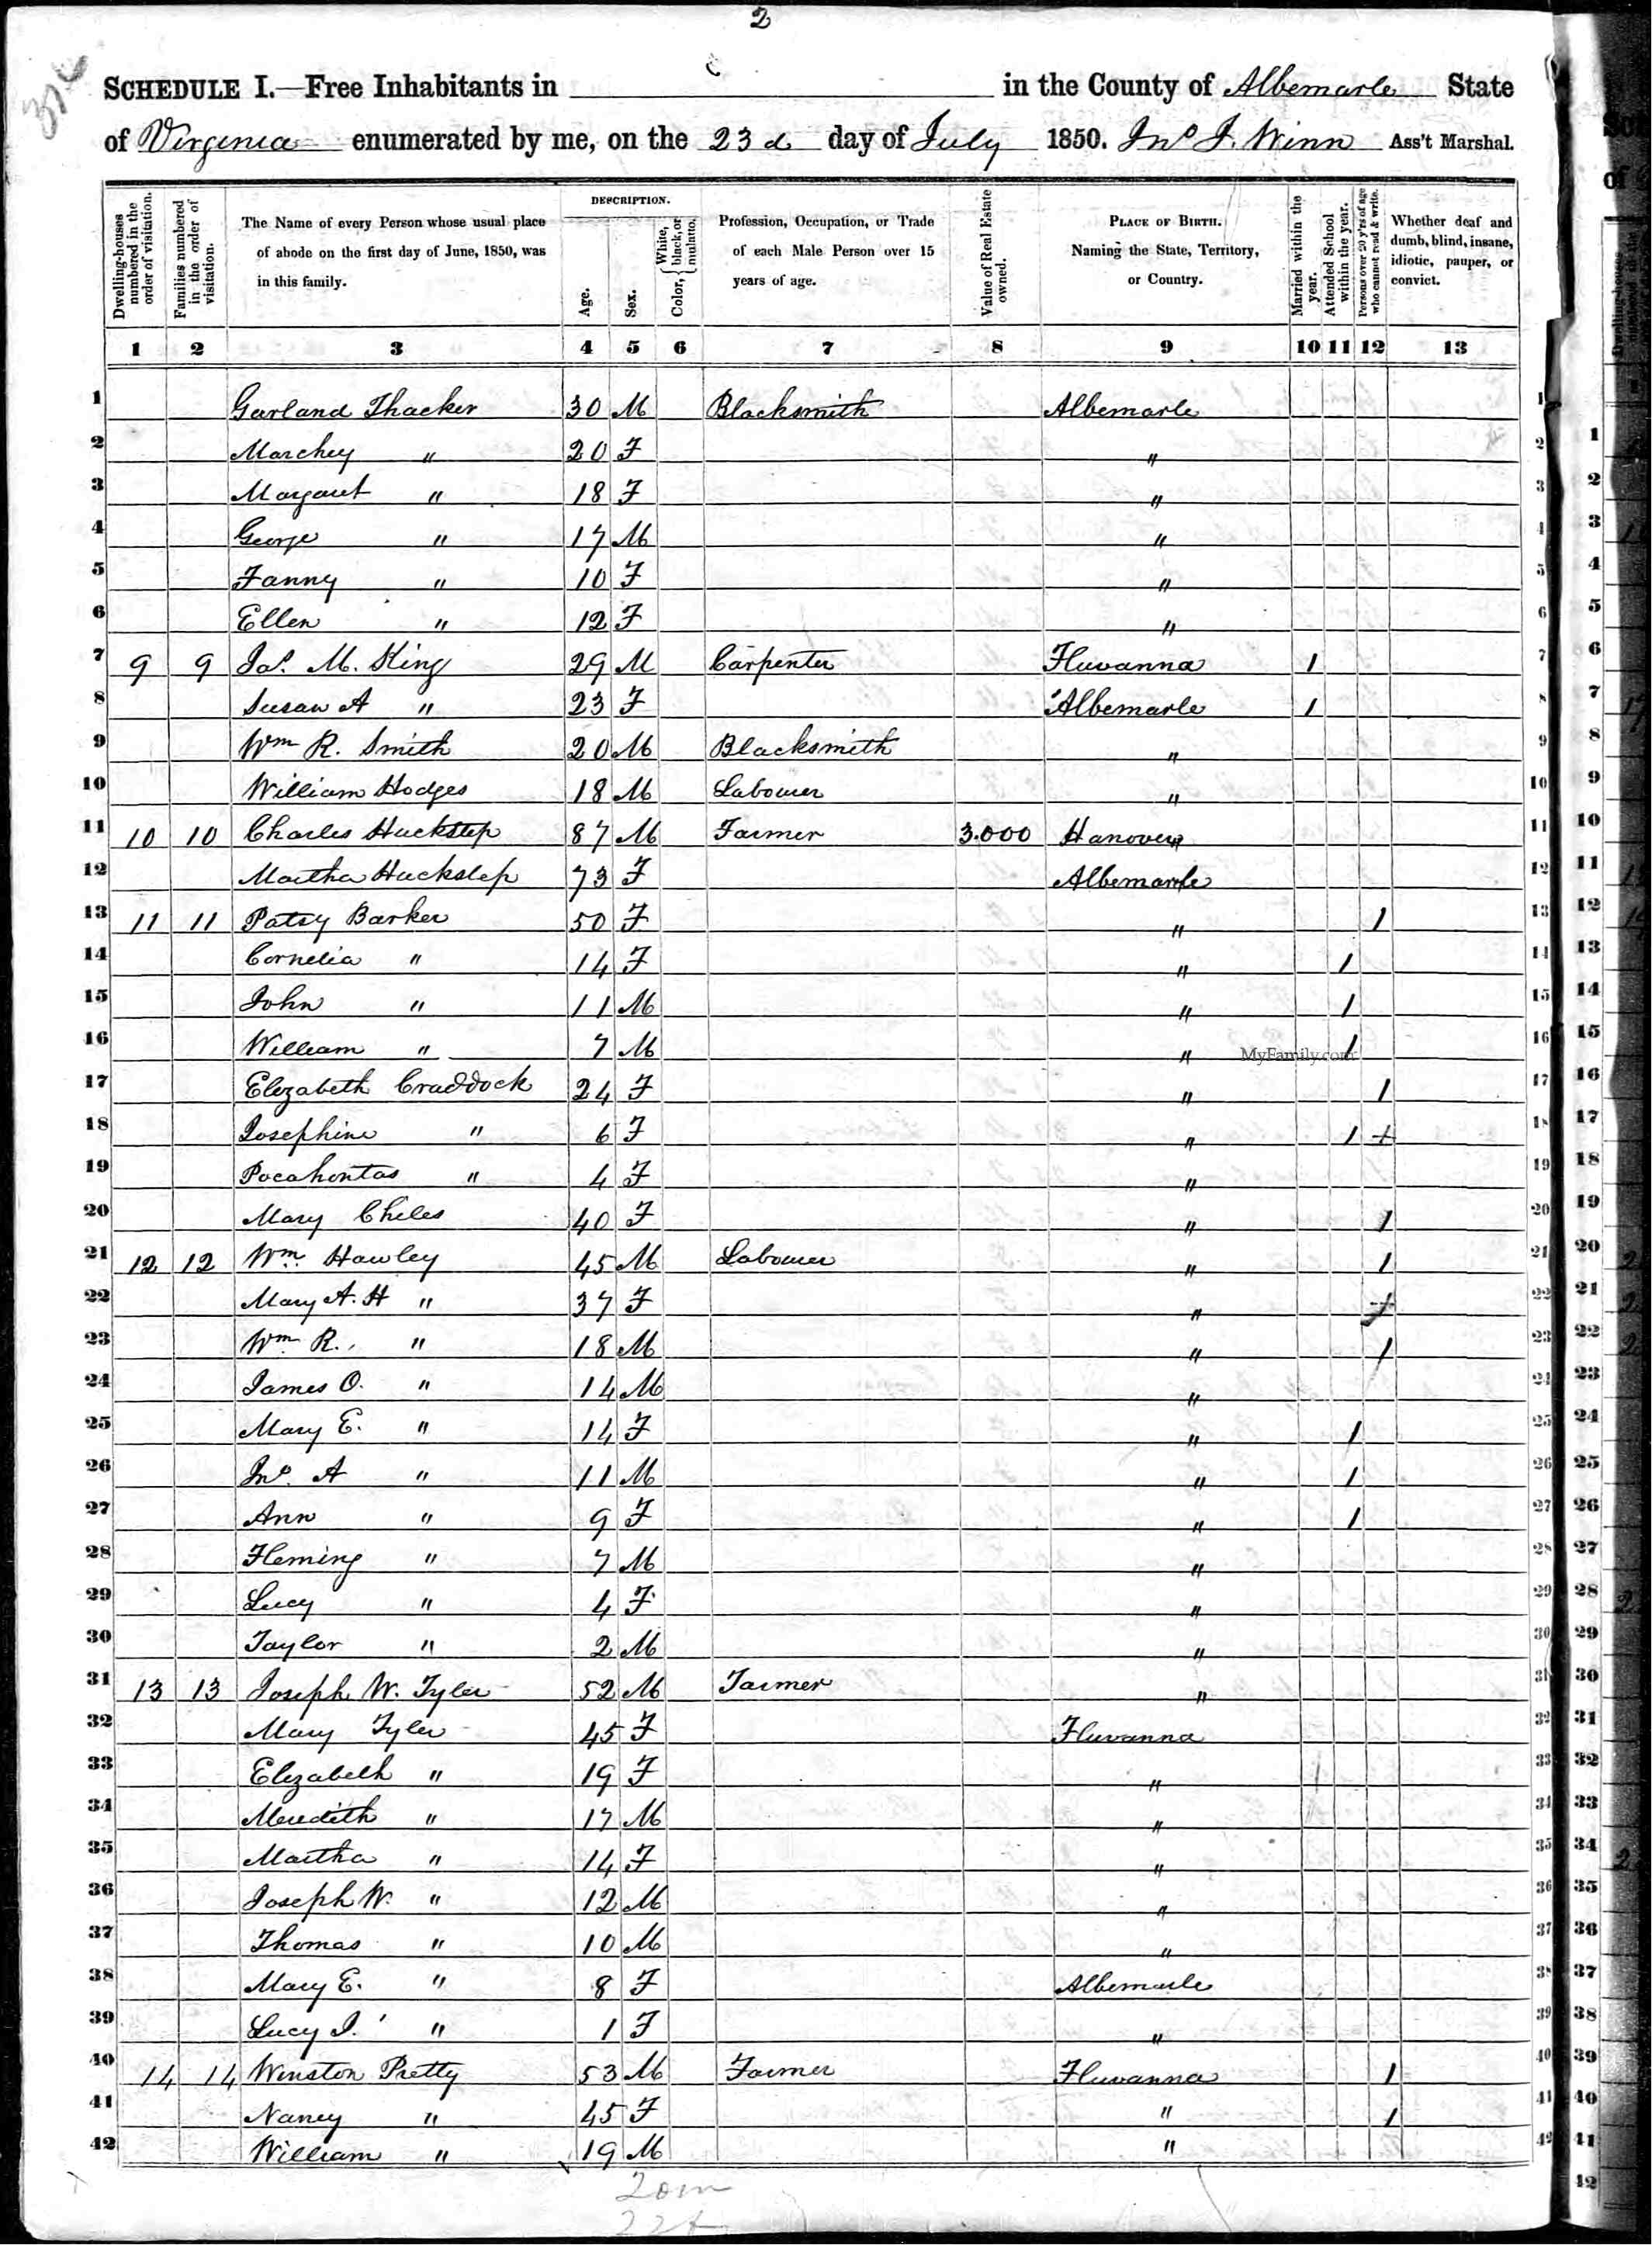 2
SCHEDULE I.—Free Inhabitants in in the County of Albemarle State
of Virginia enumerated by me, on the 23d day of July 1850. Jno J. Winn Ass't Marshal.
Dwelling-houses numbered in the order of visitation.
Families numbered in the order of visitation.
The Name of every Person whose usual place of abode on the first day of June, 1850, was in this family.
DESCRIPTION.
Age.
Sex.
Color, { White, black, or mulatto.
Profession, Occupation, or Trade of each Male Person over 15 years of age.
Value of Real Estate owned.
PLACE OF BIRTH. Naming the State, Territory, or Country.
Married within the year.
Attended School within the year.
Persons over 20 y'rs of age who cannot read & write.
Whether deaf and dumb, blind, insane, idiotic, pauper, or convict.
1 2 3 4 5 6 7 8 9 10 11 12 13
1 Garland Thacker 30 M Blacksmith Albemarle 1
2 Marchey " 20 F " 2
3 Margaret " 18 F " 3
4 George " 17 M " 4
5 Fanny " 10 F " 5
6 Ellen " 12 F " 6
7 9 9 Jas. M. King 29 M Carpenter Fluvanna 1 7
8 Susan A " 23 F Albemarle 1 8
9 Wm R. Smith 20 M Blacksmith " 9
10 William Hodges 18 M Labourer " 10
11 10 10 Charles Huckstep 87 M Farmer 3.000 Hanover 11
12 Martha Huckstep 73 F Albemarle 12
13 11 11 Patsy Barker 50 F " 1 13
14 Cornelia " 14 F " 1 14
15 John " 11 M " 1 15
16 William " 7 M " 1 16
MyFamily.com
17 Elizabeth Craddock 24 F " 1 17
18 Josephine " 6 F " 1 + 18
19 Pocahontas " 4 F " 19
20 Mary Chiles 40 F " 1 20
21 12 12 Wm. Hawley 45 M Labourer " 1 21
22 Mary A. H " 37 F " + 22
23 Wm R. " 18 M " 1 23
24 James O. " 14 M " 24
25 Mary E. " 14 F " 1 25
26 Jno. A " 11 M " 1 26
27 Ann " 9 F " 1 27
28 Fleming " 7 M " 28
29 Lucy " 4 F " 29
30 Taylor " 2 M " 30
31 13 13 Joseph W. Tyler 52 M Farmer " 31
32 Mary Tyler 45 F Fluvanna 32
33 Elizabeth " 19 F " 33
34 Meredith " 17 M " 34
35 Martha " 14 F " 35
36 Joseph W. " 12 M " 36
37 Thomas " 10 M " 37
38 Mary E. " 8 F Albemarle 38
39 Lucy J. " 1 F " 39
40 14 14 Winston Pretty 53 M Farmer Fluvanna 1 40
41 Nancy " 45 F " 1 41
42 William " 19 M " 42
20m